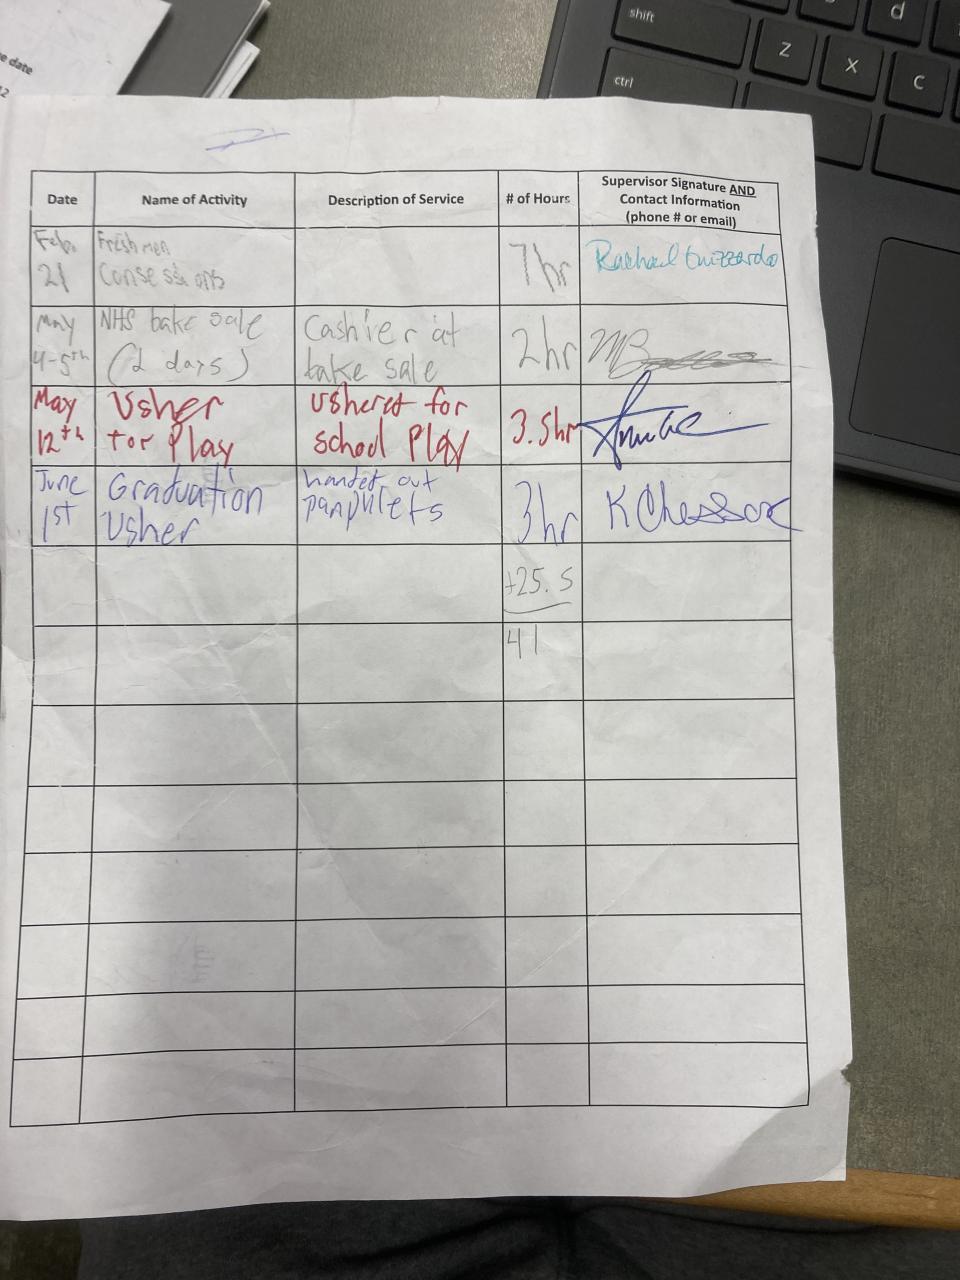 e date
12
shift
ctrl
Z
X
C
d
Date
Name of Activity
Description of Service
# of Hours
Supervisor Signature AND
Contact Information
(phone # or email)
Feb.
21
Freshmen
Consessions
7hr
Rachael
May
4-5th
NHS bake sale
(2 days)
Cashier at
bake sale
2hr
May
12th
Usher
for Play
ushered for
school Play
3.5hr
June
1st
Graduation
Usher
handed out
panphlets
3hr
K Chessor
+25.5
41